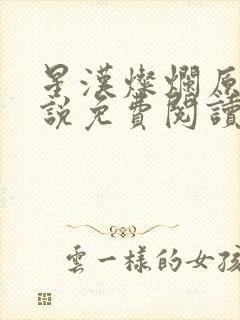 星漢燦爛原
說免費閱讀
雲一樣的女孩